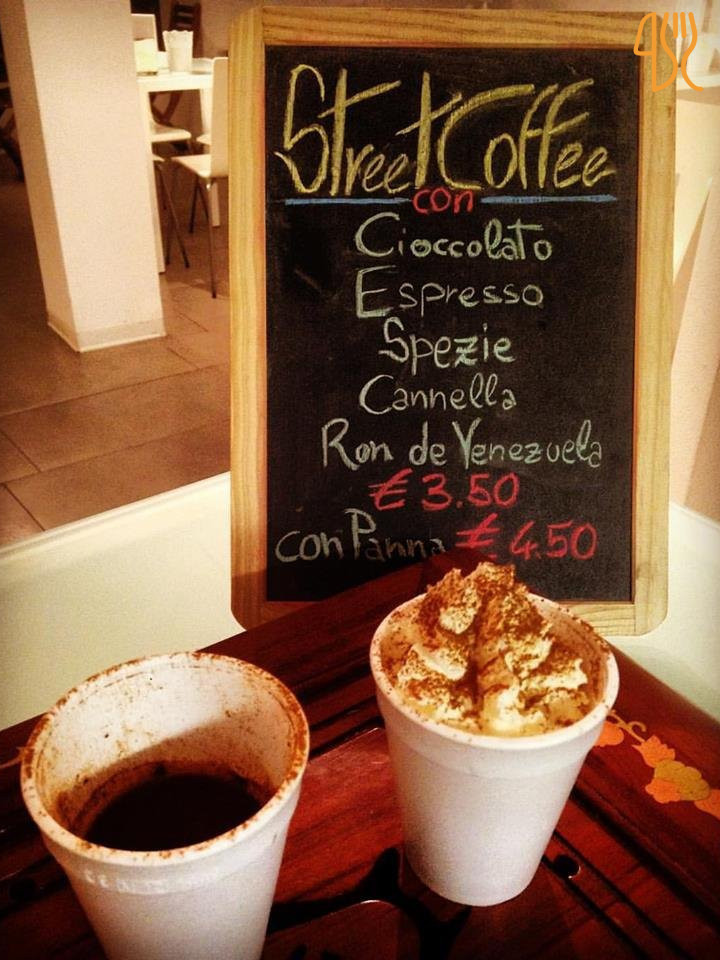 Street Coffee
con
Cioccolato
Espresso
Spezie
Cannella
Ron de Venezuela
€ 3.50
con Panna € 4.50